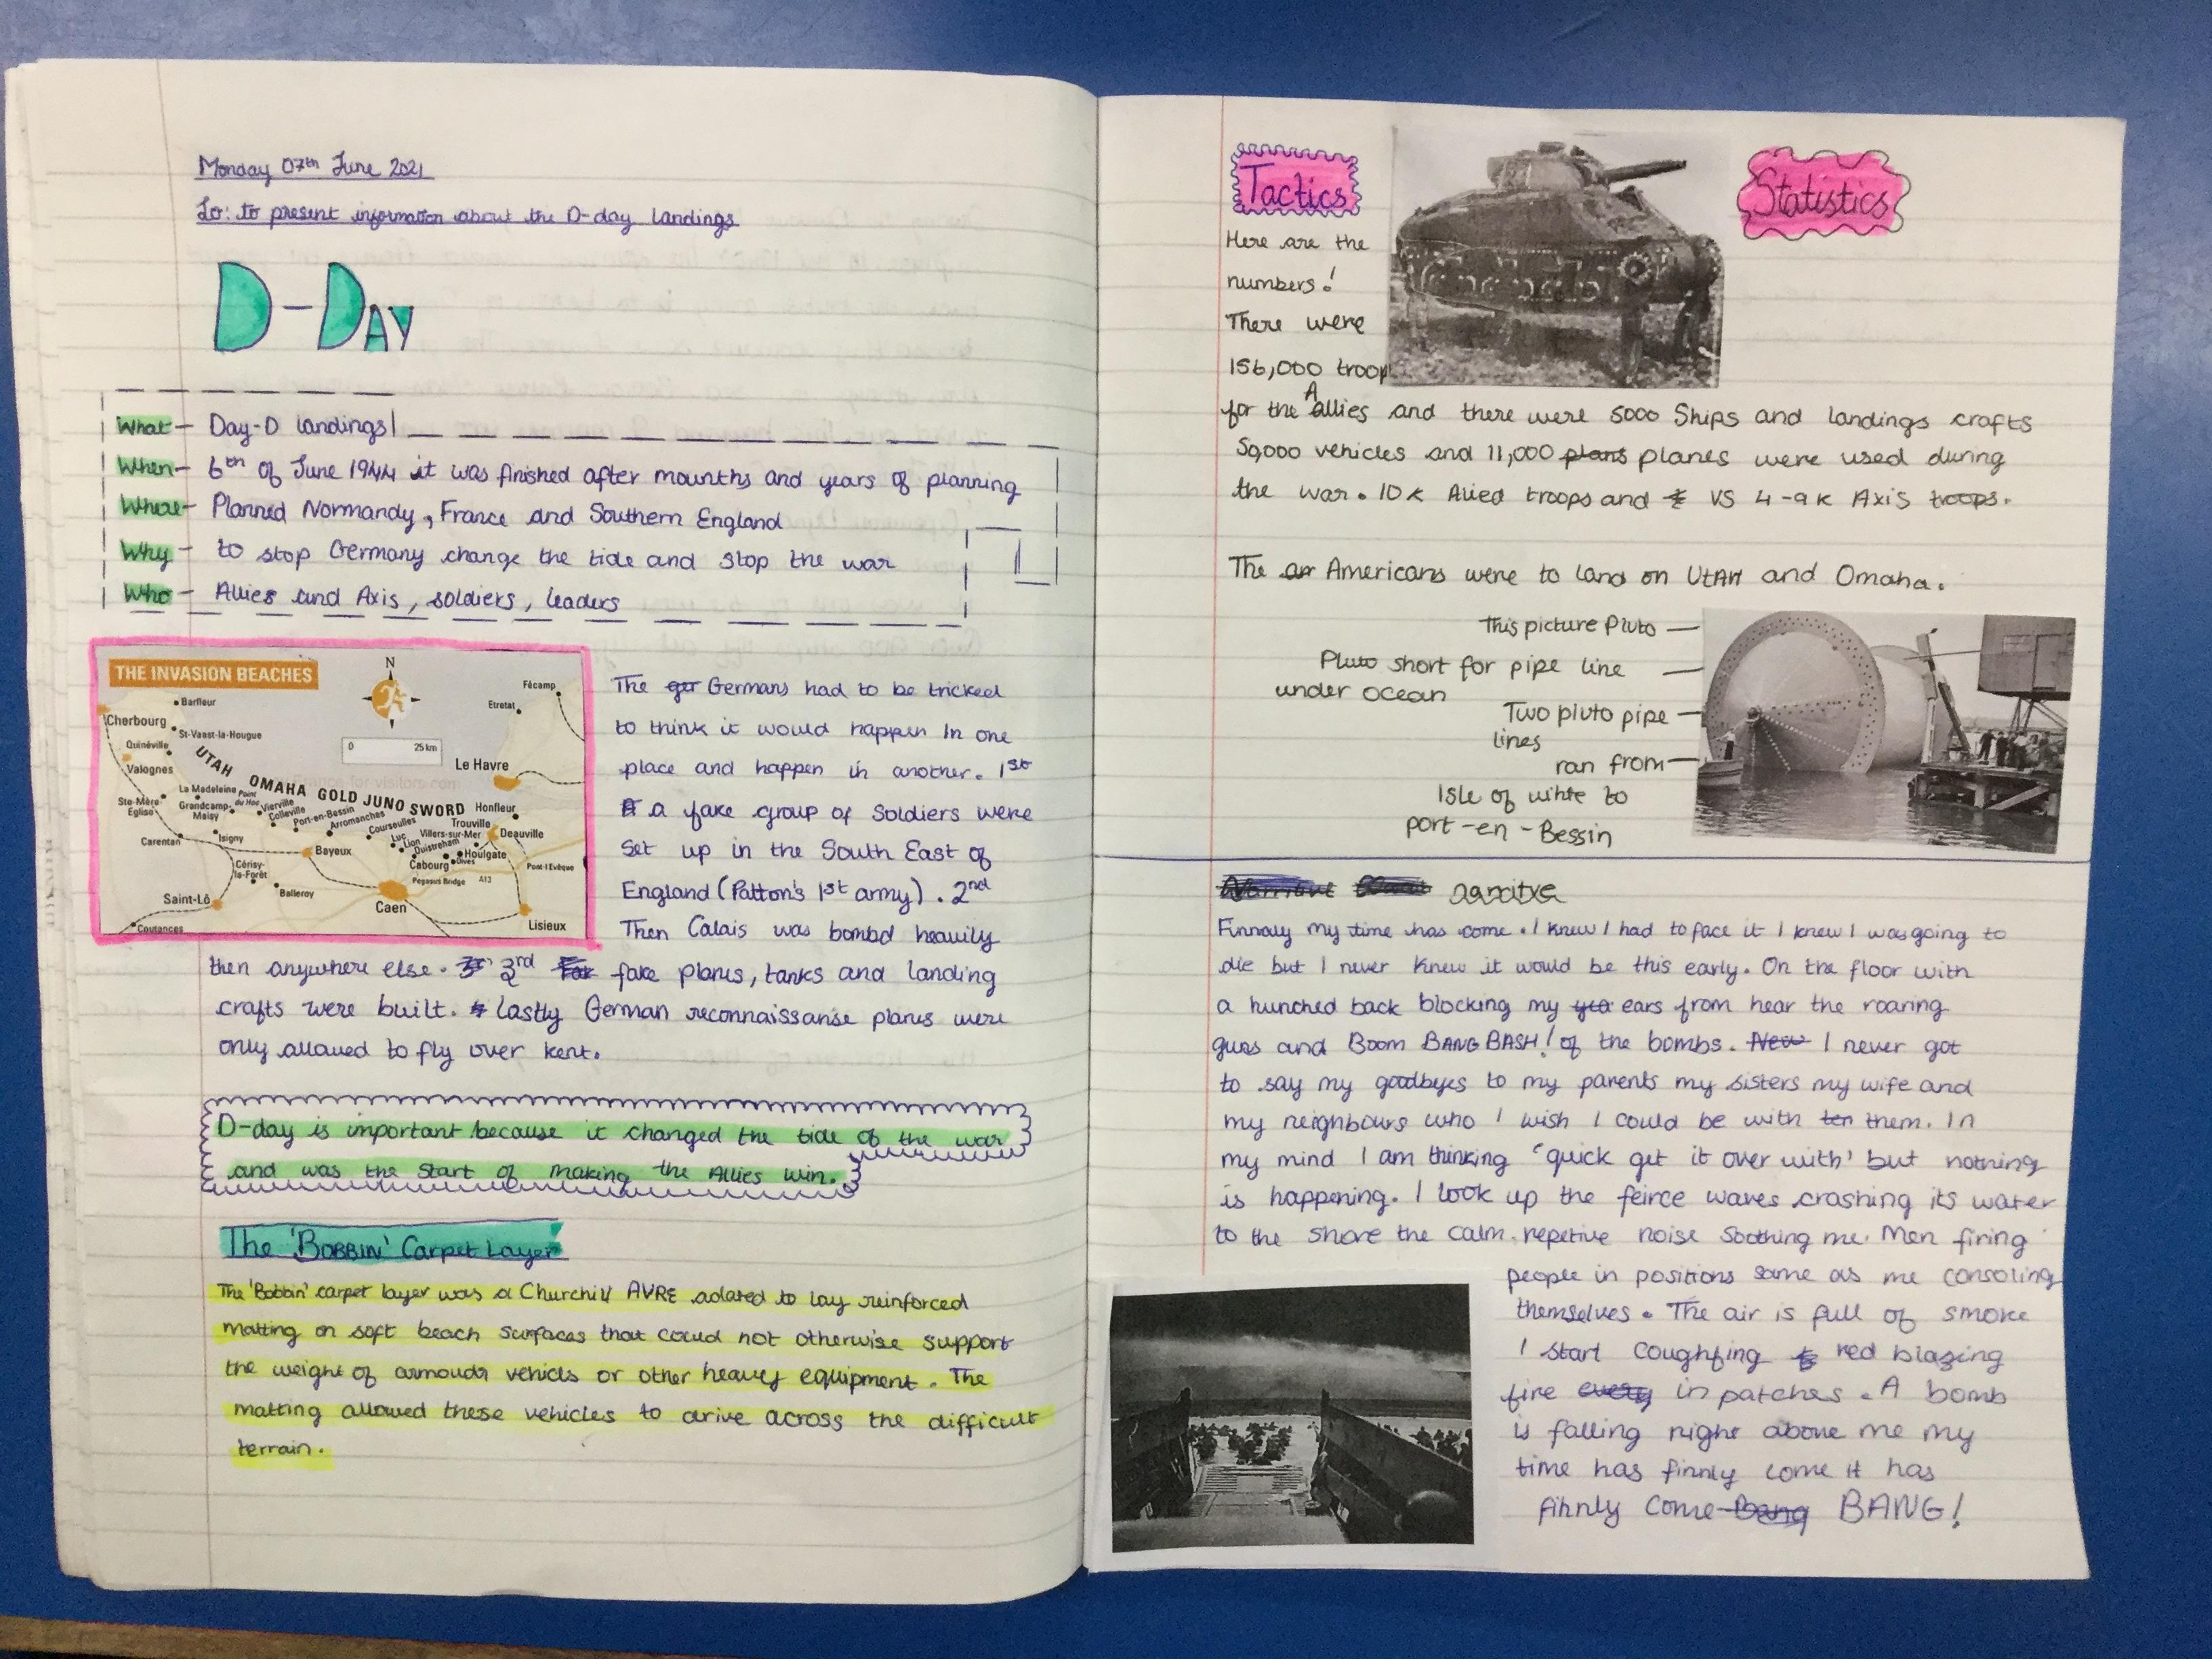 Monday 07th June 2021
Lo: to present information about the D-day landings
D-DAY
What - Day-D landings
When - 6th of June 1944 it was finished after mounths and years of planning
Where - Planned Normandy, France and Southern England
Why - to stop Germany change the tide and stop the war
Who - Allies and Axis, soldiers, leaders
THE INVASION BEACHES
N
Fécamp
Etretat
Barfleur
Cherbourg
St-Vaast-la-Hougue
0 25 km
Quinéville
Valognes
Le Havre
UTAH OMAHA GOLD JUNO SWORD
La Madeleine
Pointe du Hoc
Ste-Mère-Eglise
Grandcamp-Maisy
Vierville
Colleville
Port-en-Bessin
Arromanches
Courseulles
Honfleur
Trouville
Villers-sur-Mer
Deauville
Luc
Lion
Ouistreham
Houlgate
Carentan
Isigny
Bayeux
Cabourg
Dives
Pont-l'Evêque
Cérisy-la-Forêt
Pegasus Bridge
A13
Balleroy
Saint-Lô
Caen
Lisieux
Coutances
The ger Germans had to be tricked
to think it would happen in one
place and happen in another. 1st
a fake group of Soldiers were
set up in the South East of
England (Patton's 1st army). 2nd
Then Calais was bombd heavily
then anywhere else. 3rd fake planes, tanks and landing
crafts were built. Lastly German reconnaissanse planes were
only allowed to fly over kent.
D-day is important because it changed the tide of the war
and was the start of making the Allies win.
The 'BOBBIN' Carpet Layer
The 'Bobbin' carpet layer was a Churchill AVRE adated to lay reinforced
matting on soft beach surfaces that could not otherwise support
the weight of armoudr vehicls or other heavey equipment. The
matting allowed these vehicles to drive across the difficult
terrain.
Tactics
Statistics
Here are the
numbers!
There were
156,000 troop
for the Allies and there were 5000 Ships and landings crafts
50,000 vehicles and 11,000 plans planes were used during
the war. 10k Allied troops and VS 4-9k Axis troops.
The am Americans were to land on UtAH and Omaha.
This picture Pluto
Pluto short for pipe line
under ocean
Two pluto pipe
lines
ran from
Isle of white to
port-en-Bessin
Narritive narritve
Finnaly my time has come. I knew I had to face it I knew I was going to
die but I never knew it would be this early. On the floor with
a hunched back blocking my ears from hear the roaring
guns and Boom BANG BASH! of the bombs. New I never got
to say my goodbyes to my parents my sisters my wife and
my neighbours who I wish I could be with ten them. In
my mind I am thinking 'quick get it over with' but nothing
is happening. I look up the feirce waves crashing its water
to the shore the calm repetive noise soothing me. Men firing
people in positions same as me consoling
themselves. The air is full of smoke
I start coughfing red blazing
fire every in patches. A bomb
is falling right above me my
time has finnly come it has
finnly come bang BANG!